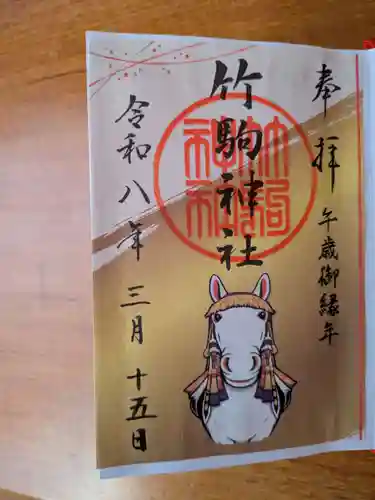 奉拝
午歳御縁年
竹駒神社
令和八年 三月 十五日